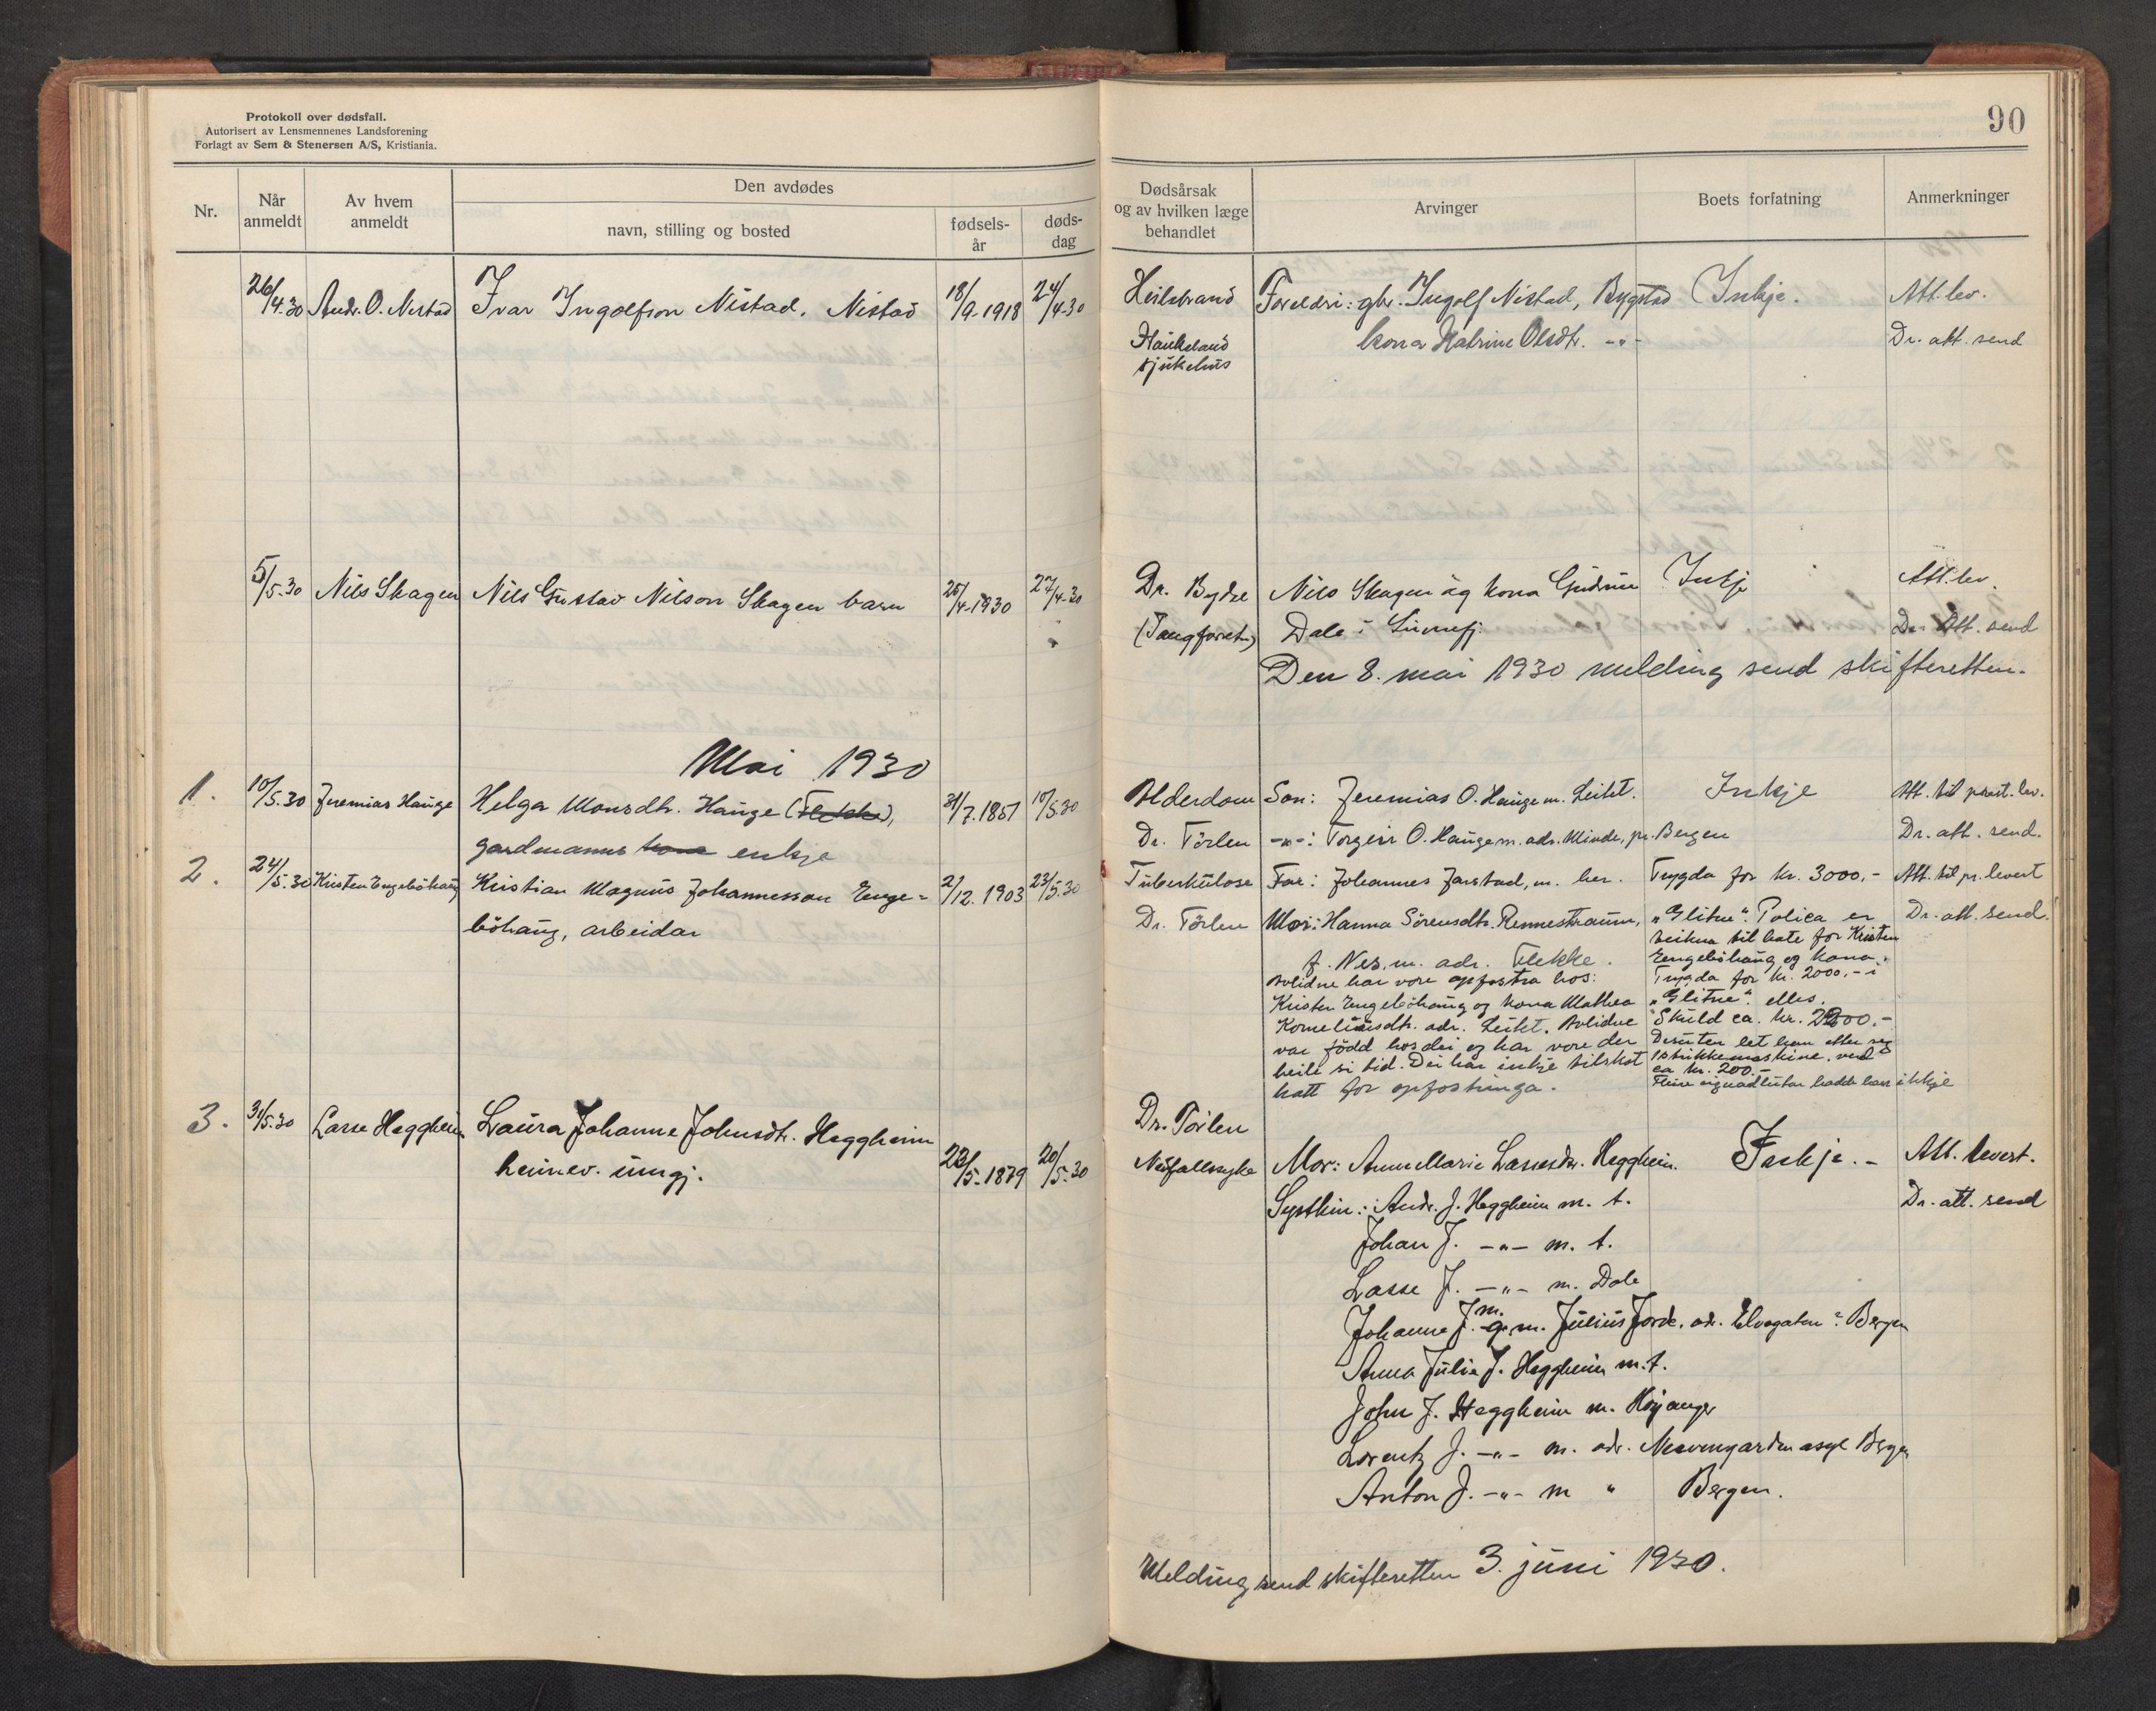 Protokoll over dødsfall.
Autorisert av Lensmennenes Landsforening
Forlagt av Sem & Stenersen A/S, Kristiania.
90
Nr.
Når anmeldt
Av hvem anmeldt
Den avdødes
navn, stilling og bosted
fødsels-år
døds-dag
Dødsårsak og av hvilken læge behandlet
Arvinger
Boets forfatning
Anmerkninger
26/4.30 Andr. O. Nistad Ivar Ingolfson Nistad, Nistad 18/9-1918 24/4-30 Heilebrand Foreldri: gbr. Ingolf Nistad, Bygstad Inkje. Att. lev.
Haukeland kona Katrine Olsdtr. -"- Dr. att. send
sjukehus
5/5-30 Nils Skagen Nils Gustav Nilson Skagen barn 25/4-1930 27/4-30 Dr. Bydre Nils Skagen og kona Gudrun Inkje Att. lev.
(Tangføret) Dale i Sunnfj. Dr. Att. send
Den 8. mai 1930 melding send skifteretten.
Mai 1930
1. 10/5.30 Jeremias Hauge Helga Monsdtr. Hauge (Flekke), 31/7.1851 10/5.30 Alderdom Son: Jeremias O. Hauge m. Leikt. Inkje Att. til prest. lev.
gardmanns kone enkje Dr. Tørlen -"-: Torgeir O. Hauge m. adr. Minde, pr. Bergen Dr. att. send.
2. 24/5.30 Kristen Engebøhaug Kristian Magnus Johannesson Enge= 2/12.1903 23/5.30 Tuberkulose Far: Johannes Jarstad, m. her. Trygda for kr. 3000,- Att. til pr. levert
bøhaug, arbeidar Dr. Tørlen Mor: Hanna Sørensdtr. Rennestraum, "Glitne". Polica er Dr. att. send.
teikna til bate for Kristen
f. Nes, m. adr. Flekke. Engebøhaug og kona.
Avlidne har vore opfostra hos: Trygda for kr. 2000,- i
Kristen Engebøhaug og kona Mathea "Glitne". elles.
Korneliusdtr. adr. Leikt. Avlidne Skuld ca. kr. 2200.-
var fødd hos dei og har vore der Desuten let han etter seg
heile si tid. Dei har inkje tilskot 1 strikkemaskine, verd
ca kr. 200.-
hatt for opfostringa. Fleire eignadlutar hadde han ikkje
3. 31/5.30 Lasse Heggheim Laura Johanne Johnsdtr. Heggheim Dr. Tørlen
heimev. ungj. 22/5-1879 20/5-30 Nedfallssyke Mor: Anne Marie Lassesdtr. Heggheim. Inkje.- Att. levert.
Systkin: Andr. J. Heggheim m. t. Dr. att. send
Johan J. -"- m. t.
Lasse J. -"- m. Dale
Johanne J. g.m. Julius Jorde. adr. Elvegaten 2 Bergen
Anna Julie J. Heggheim m. t.
John J. Heggheim m. Høyanger
Lorentz J. -"- m. adr. Neevengarden asyl Bergen
Anton J. -"- m " Bergen.
Melding send skifteretten 3. juni 1930.